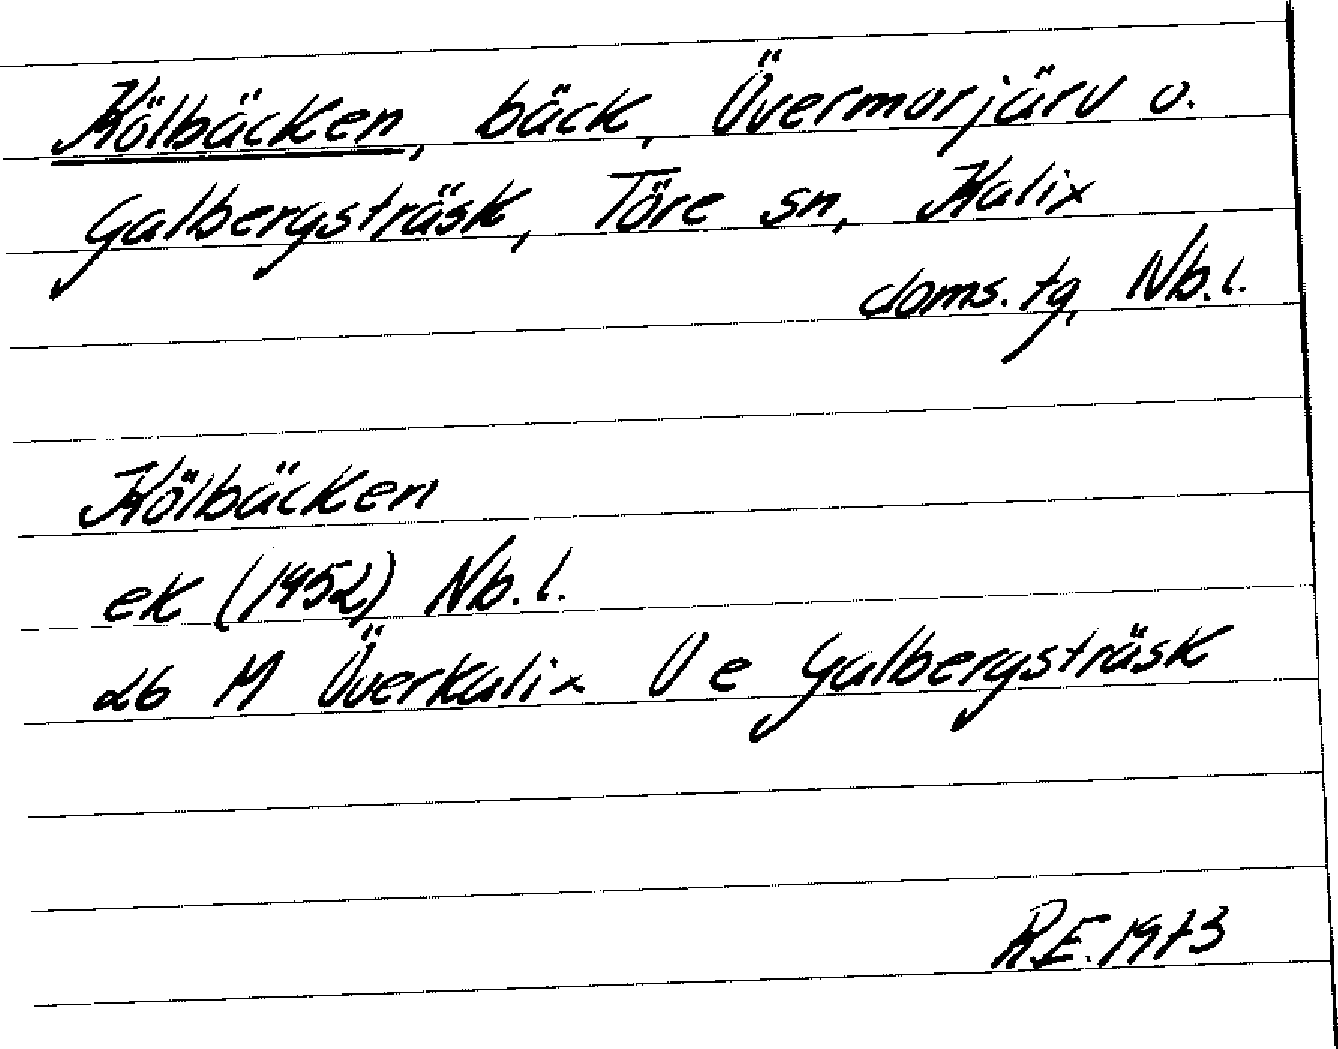 Kölbäcken, bäck, Övermorjärv o.
Galbergsträsk, Töre sn, Kalix
doms. tg, Nb. l.
Kölbäcken
ek (1952) Nb. l.
26 M Överkalix Ö e Galbergsträsk
R.E. 1973